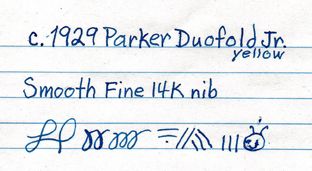 c. 1929 Parker Duofold Jr.
yellow
Smooth Fine 14K nib